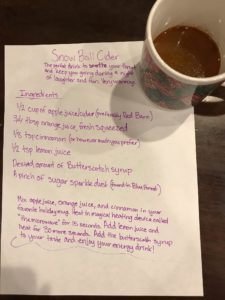 Snow Ball Cider
The perfect drink to soothe your throat
and keep you going during a night
of laughter and fun. Very warming.
Ingredients
1/2 cup of apple juice/cider (preferably Red Barn)
3/4 tbsp orange juice, fresh squeezed
1/8 tsp cinnamon (or however much you prefer)
1/2 tsp lemon juice
Desired amount of Butterscotch syrup
A pinch of sugar sparkle dust (found in Blue Forest)
Mix apple juice, orange juice, and cinnamon in your
favorite holiday mug. Heat in magical heating device called
"the microwave" for 15 seconds. Add lemon juice and
heat for 30 more seconds. Add the butterscotch syrup
to your taste and enjoy your energy drink!